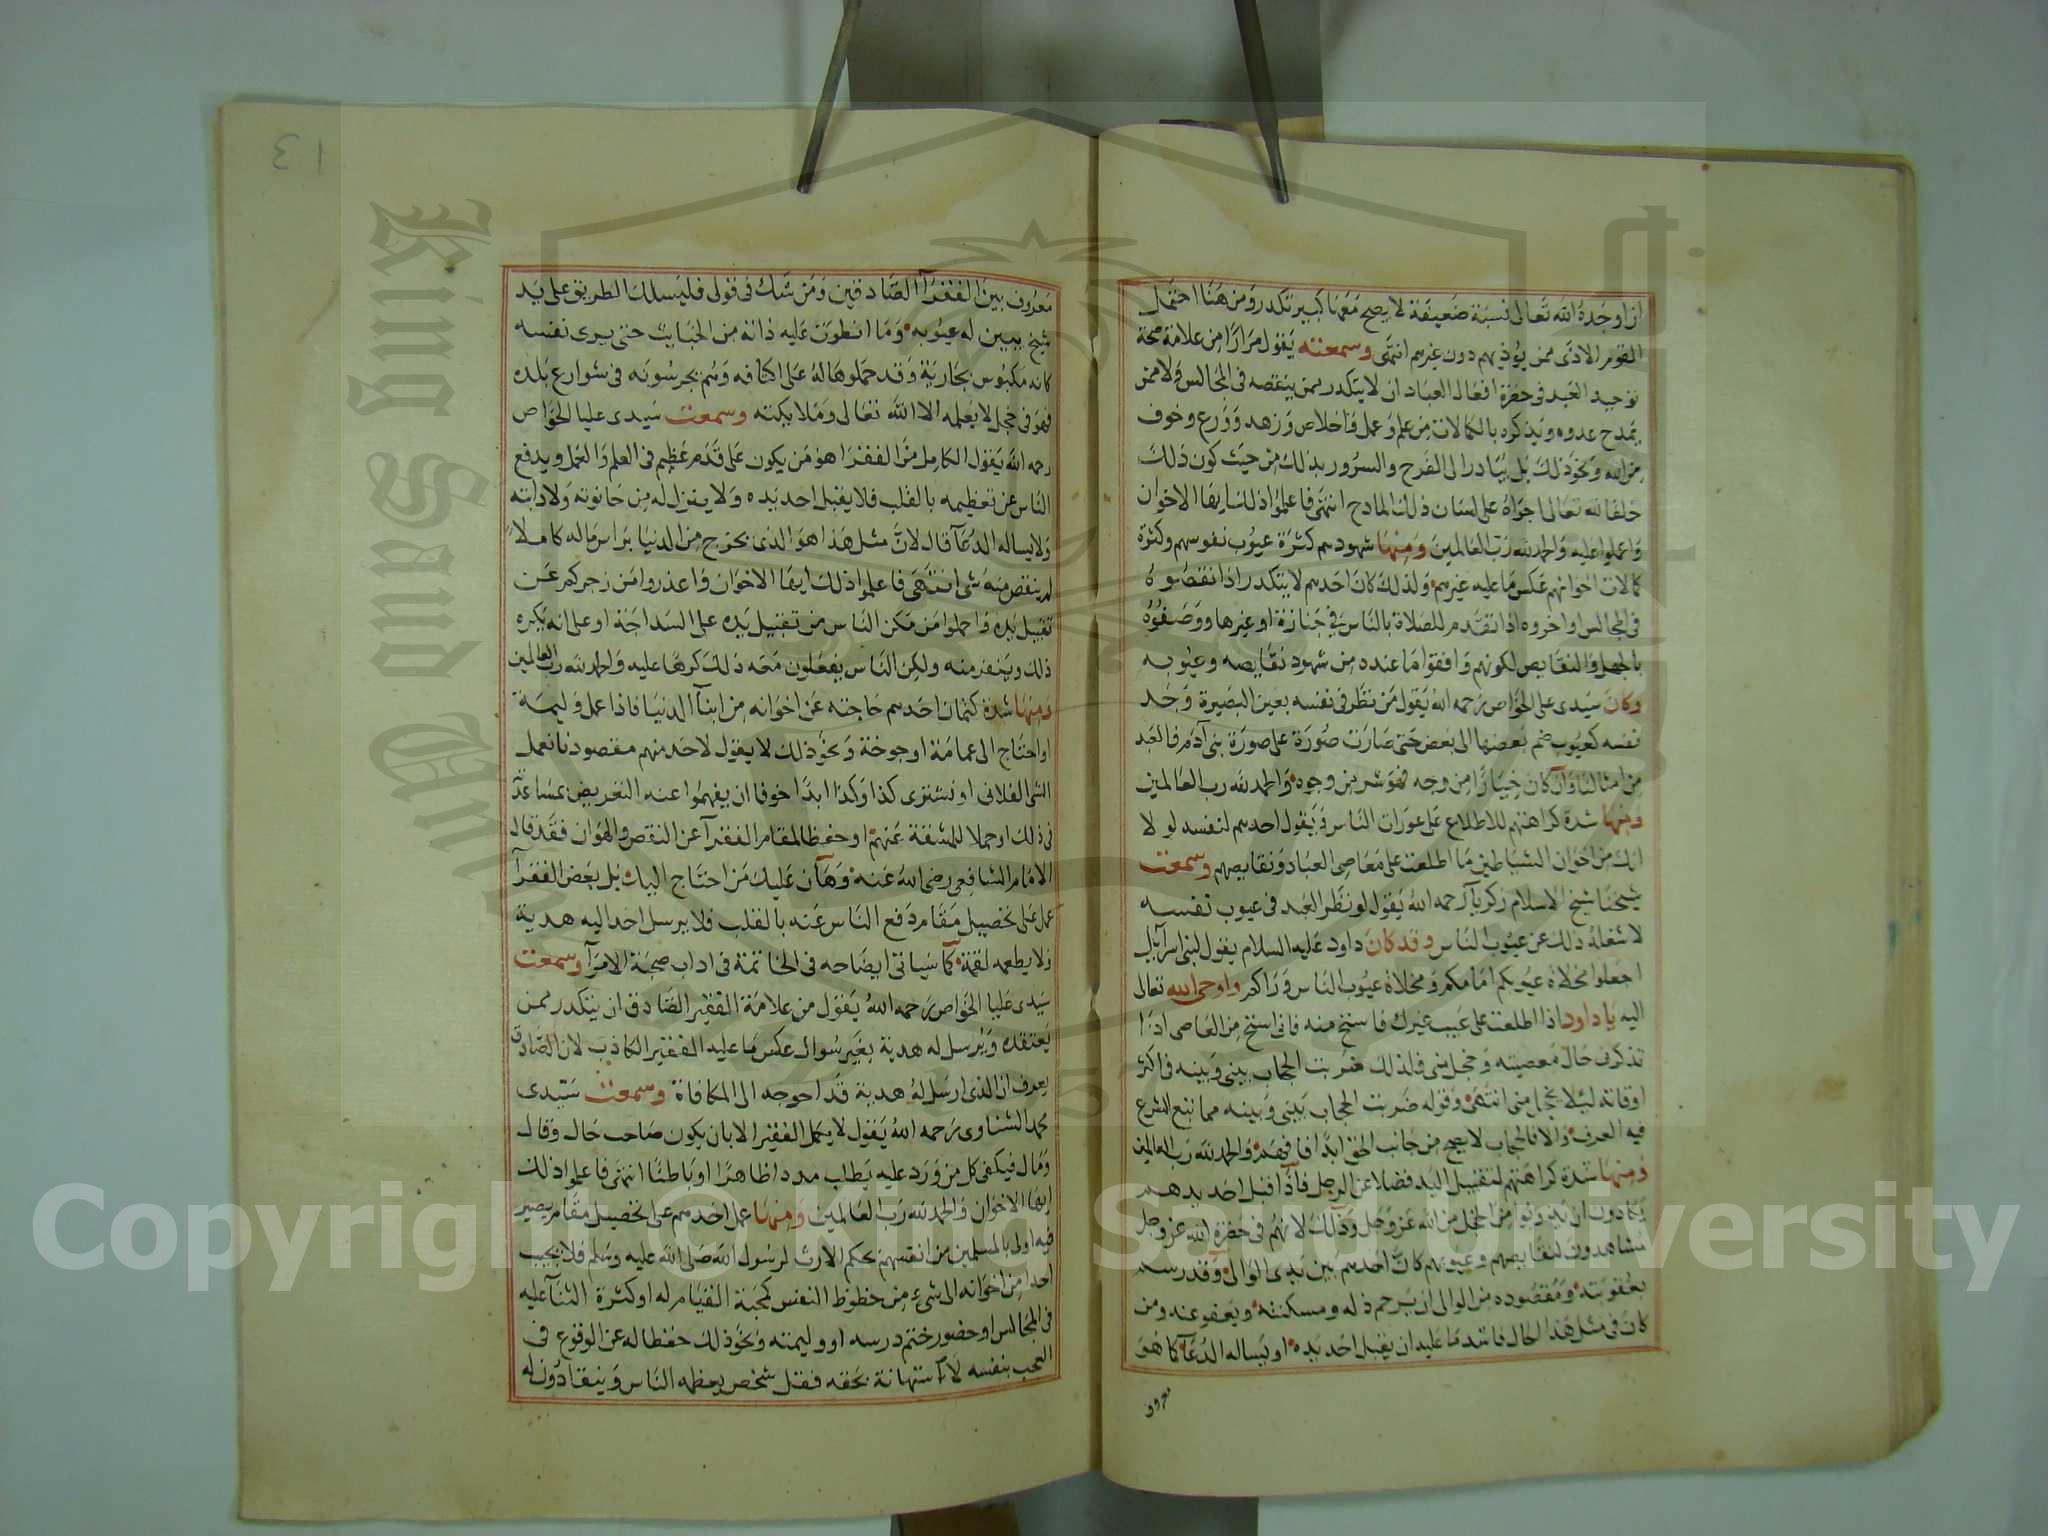 ان اوجده الله تعالى نسبة ضعيفة لا يصح معها كبير تكدر ومن هنا احتمل
القوم الاذى ممن يؤذيهم دون غيرهم انتهى وسمعته يقول مرارا من علامة صحة
توحيد العبد في حضرة افعال العباد ان لا يتكدر ممن ينقصه في المجالس ولا ممن
يمدح عدوه ويذكره بالكمالات من علم وعمل واخلاص وزهد وورع وخوف
من الله ونحو ذلك بل يبادر الى الفرح والسرور بذلك من حيث كون ذلك
خلقا لله تعالى اجراه على لسان ذلك المادح انتهى فاعلموا ذلك ايها الاخوان
واعملوا عليه والحمد لله رب العالمين ومنها شهودهم كثرة عيوب نفوسهم وكثرة
كمالات اخوانهم عكس ما عليه غيرهم ولذلك كان احدهم لا يتكدر اذا نقصوه
في المجالس او اخروه اذا تقدم للصلاة بالناس في جنازة او غيرها ووصفوه
بالجهل والنقايص لكونهم وافقوا ما عنده من شهود نقايصه وعيوبه
وكان سيدى على الخواص رحمه الله يقول من نظر في نفسه بعين البصيرة وجد
نفسه كعيوب ضم بعضها الى بعض حتى صارت صورة على صورة بنى آدم فالعبد
من امثالنا وان كان خيارا من وجه فهو شر من وجوه والحمد لله رب العالمين
ومنها شدة كراهتهم للاطلاع على عورات الناس فيقول احدهم لنفسه لو لا
انك من اخوان الشياطين ما اطلعت على معاصى العباد ونقايصهم وسمعت
شيخنا شيخ الاسلام زكريا رحمه الله يقول لو نظر العبد فى عيوب نفسه
لا شغله ذلك عن عيوب الناس وقد كان داود عليه السلام يقول لبنى اسرآيل
اجعلوا مخلاة عيوبكم امامكم ومخلاة عيوب الناس ورآكم واوحى الله تعالى
اليه يا داود اذا اطلعت على عيب غيرك فاستح منه فانى استح من العاصى اذا
تذكرنى حال معصيته وخجل منى فلذلك ضربت الحجاب بينى وبينه فى اكثر
اوقاته لئلا يخجل منى انتهى وقوله ضربت الحجاب بينى وبينه مما تبع الشرع
فيه العرف والا فالحجاب لا يصح من جانب الحق ابدا فافهم والحمد لله رب العالمين
ومنها شدة كراهتهم لتقبيل اليد فضلا عن الرجل فاذا قبل احد يدهم
يكادون ان يذوبوا من الخجل من الله عز وجل وذلك لانهم فى حضرة الله عز وجل
مشاهدون لنقايصهم وعيوبهم كان احدهم بين يدى الوالى وقد رسم
بعقوبته ومقصوده من الوالى ان يرحم ذله ومسكنته ويعفو عنه ومن
كان فى مثل هذا الحال فاشد ما عليه ان يقبل احد يده او يساله الدعا كما هو
معروف
١٣
معروف بين الفقرآ الصادقين ومن شك فى قولى فليسلك الطريق على يد
شيخ يبين له عيوبه وما انطوت عليه ذاته من الخبايث حتى يرى نفسه
كانه مكبوس بجارية وقد حملوها له على اكتافه وهم يجرسونه فى شوارع بلده
فهو فى خجل لا يعلمه الا الله تعالى وملايكته وسمعت سيدى عليا الخواص
رحمه الله يقول الكامل من الفقرا هو من يكون على قدم عظيم فى العلم والعمل ويدفع
الناس عن تعظيمه بالقلب فلا يقبل احد يده ولا ينزل له من حانوته ولا دابته
ولا يساله الدعآ قال لان مثل هذا هو الذى يخرج من الدنيا براس ماله كاملا
لم ينقص منه شى انتهى فاعلموا ذلك ايها الاخوان واعذروا من زجركم عن
تقبيل يده واحملوا من مكن الناس من تقبيل يده على السذاجة او على انه يكره
ذلك وينفر منه ولكن الناس يفعلون معه ذلك كرها عليه والحمد لله رب العالمين
ومنها شدة كتمان احدهم حاجته عن اخوانه من ابنآ الدنيا فاذا عمل وليمة
او احتاج الى عمامة او جوخة ونحو ذلك لا يقول لاحد منهم مقصودنا نعمل
الشى الفلانى او نشترى كذا وكذا ابدا خوفا ان يفهموا عنه التعريض بمساعدته
فى ذلك او حملا للمشقة عنهم او حفظا لمقام الفقرآ عن النقص والهوان فقد قال
الامام الشافعى رضى الله عنه وهان عليك من احتاج اليك بل بعض الفقرآ
عمل على تحصيل مقام دفع الناس عنه بالقلب فلا يرسل احد اليه هدية
ولا يطعمه لقمة كما سياتى ايضاحه فى الخاتمة فى اداب صحبة الامرآ وسمعت
سيدى عليا الخواص رحمه الله يقول من علامة الفقير الصادق ان يتكدر ممن
يعتقده ويرسل له هدية بغير سوال عكس ما عليه الفقير الكاذب لان الصادق
يعرف ان الذى ارسل له هدية قد احوجه الى المكافاة وسمعت سيدى
محمد الشناوى رحمه الله يقول لا يكمل الفقير الا بان يكون صاحب حال وقال
ومال فيكفى كل من ورد عليه يطلب مددا ظاهرا او باطنا انتهى فاعلموا ذلك
ايها الاخوان والحمد لله رب العالمين ومنها عمل احدهم على تحصيل مقام يصير
فيه اولى بالمسلمين من انفسهم بحكم الارث لرسول الله صلى الله عليه وسلم فلا يجيب
احدا من اخوانه الى شىء من حظوظ النفس كمحبة القيام له او كثرة الثنآ عليه
فى المجالس او حضور ختم درسه او وليمته ونحو ذلك حفظا له عن الوقوع فى
العجب بنفسه لا استهانة بحقه فقل شخص يعظمه الناس وينقادون له
King Saud University
Copyright © King Saud University